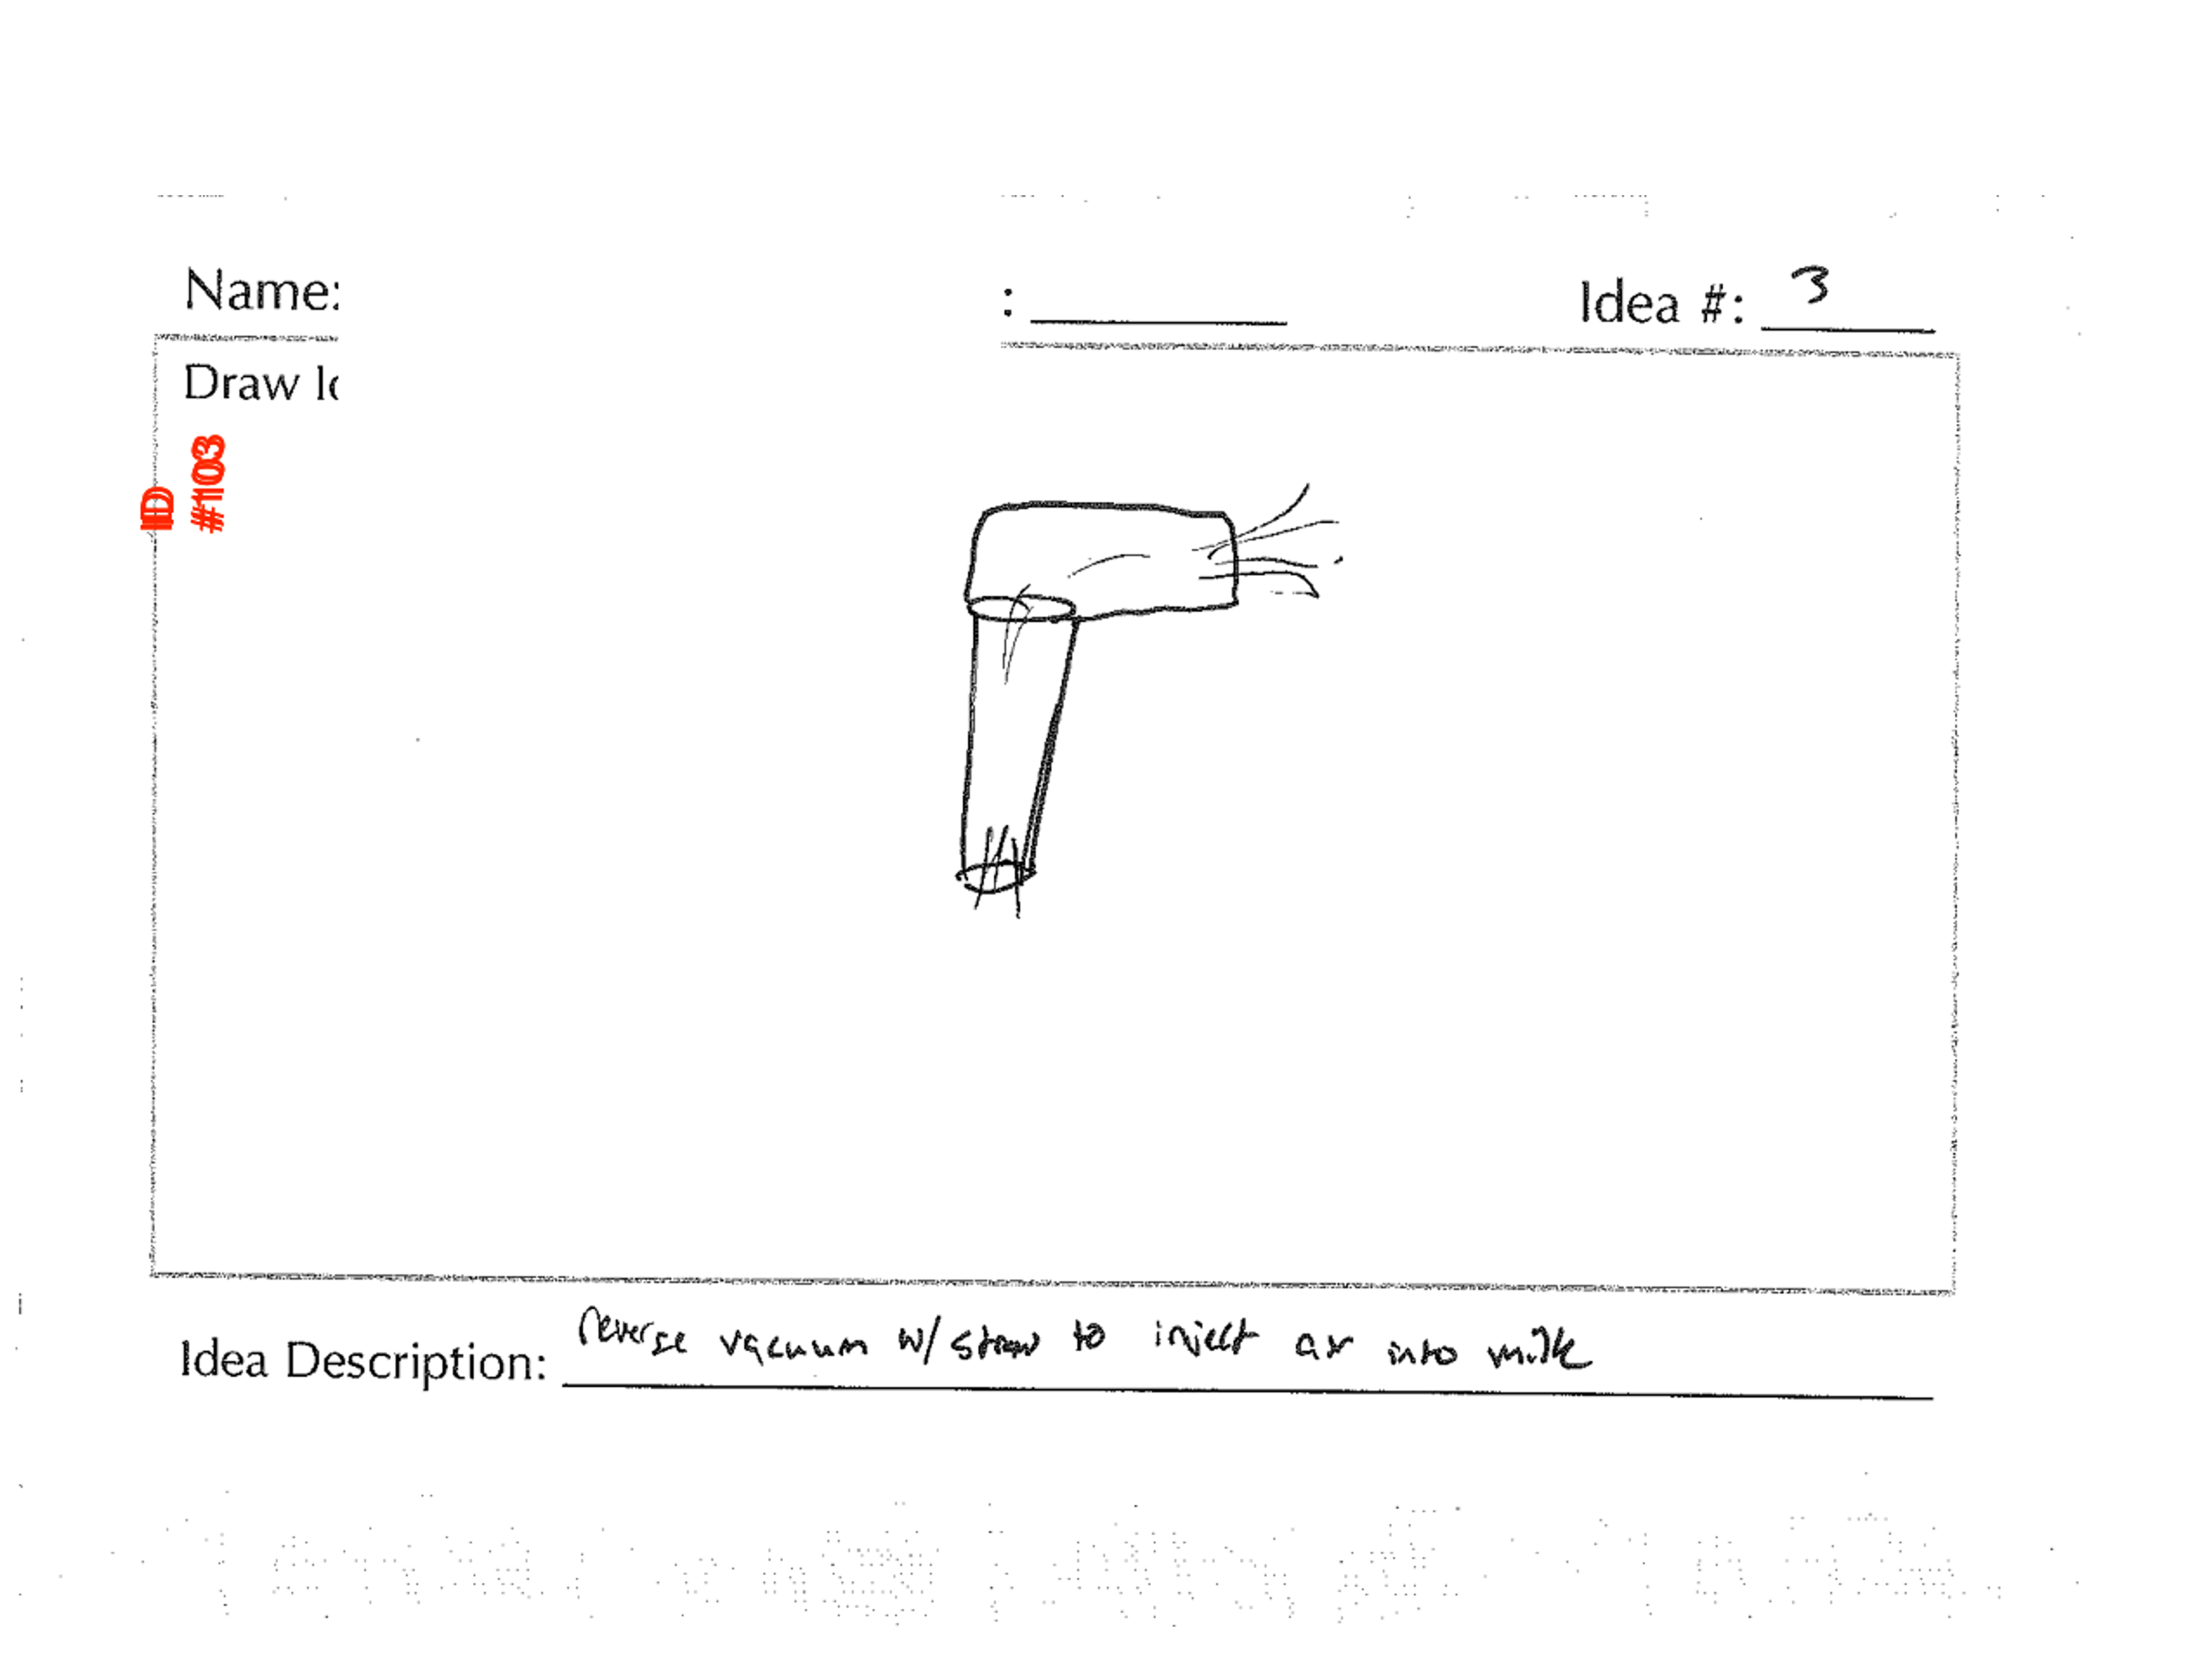 Name:
:
Idea #: 3
Draw Id
ID
#1103
Idea Description: reverse vacuum w/ straw to inject air into milk